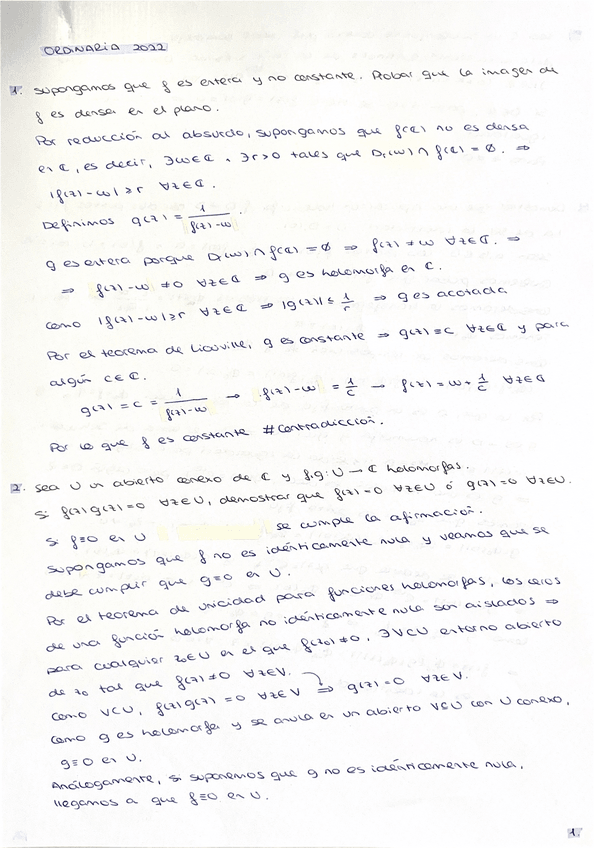 ORDINARIA 2022
1. Supongamos que f es entera y no constante. Probar que la imagen de
f es densa en el plano.
Por reducción al absurdo, supongamos que f(ℂ) no es densa
en ℂ, es decir, ∃w∈ℂ, ∃r>0 tales que Dr(w)∩f(ℂ)=∅. ⇒
|f(z)-w|≥r ∀z∈ℂ.
Definimos g(z) = 1/(f(z)-w).
g es entera porque Dr(w)∩f(ℂ)=∅ ⇒ f(z)≠w ∀z∈ℂ. ⇒
⇒ f(z)-w ≠0 ∀z∈ℂ ⇒ g es holomorfa en ℂ.
Como |f(z)-w|≥r ∀z∈ℂ ⇒ |g(z)|≤ 1/r ⇒ g es acotada
Por el teorema de Liouville, g es constante ⇒ g(z)≡c ∀z∈ℂ y para
algún c∈ℂ.
g(z)=c= 1/(f(z)-w) → f(z)-w = 1/c → f(z)=w+ 1/c ∀z∈ℂ
Por lo que f es constante #Contradicción.
2. Sea U un abierto conexo de ℂ y f,g:U→ℂ holomorfas.
Si f(z)g(z)=0 ∀z∈U, demostrar que f(z)=0 ∀z∈U ó g(z)=0 ∀z∈U.
Si f≡0 en U se cumple la afirmación.
Supongamos que f no es idénticamente nula y veamos que se
debe cumplir que g≡0 en U.
Por el teorema de unicidad para funciones holomorfas, los ceros
de una función holomorfa no idénticamente nula son aislados ⇒
para cualquier z0∈U en el que f(z0)≠0, ∃V⊂U entorno abierto
de z0 tal que f(z)≠0 ∀z∈V.
Como V⊂U, f(z)g(z)=0 ∀z∈V ⇒ g(z)=0 ∀z∈V.
Como g es holomorfa y se anula en un abierto V⊆U con U conexo,
g≡0 en U.
Análogamente, si suponemos que g no es idénticamente nula,
llegamos a que f≡0 en U.
1.